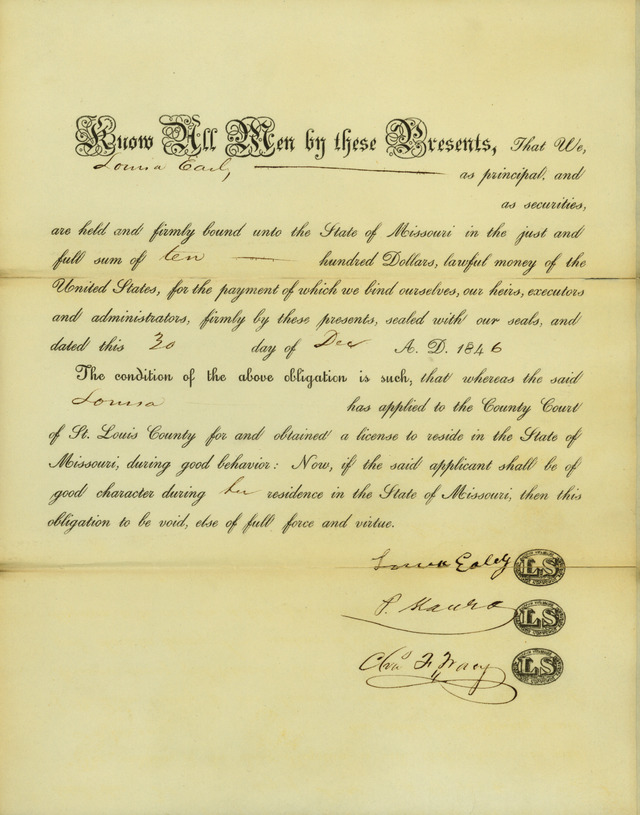 Know All Men by these Presents, That We,
Louisa as principal, and
as securities,
are held and firmly bound unto the State of Missouri in the just and
full sum of ten hundred Dollars, lawful money of the
United States, for the payment of which we bind ourselves, our heirs, executors
and administrators, firmly by these presents, sealed with our seals, and
dated this 30 day of Dec A. D. 1846
The condition of the above obligation is such, that whereas the said
Louisa has applied to the County Court
of St. Louis County for and obtained a license to reside in the State of
Missouri, during good behavior: Now, if the said applicant shall be of
good character during her residence in the State of Missouri, then this
obligation to be void, else of full force and virtue.
LS
P. LS
Chas F. Tracy LS